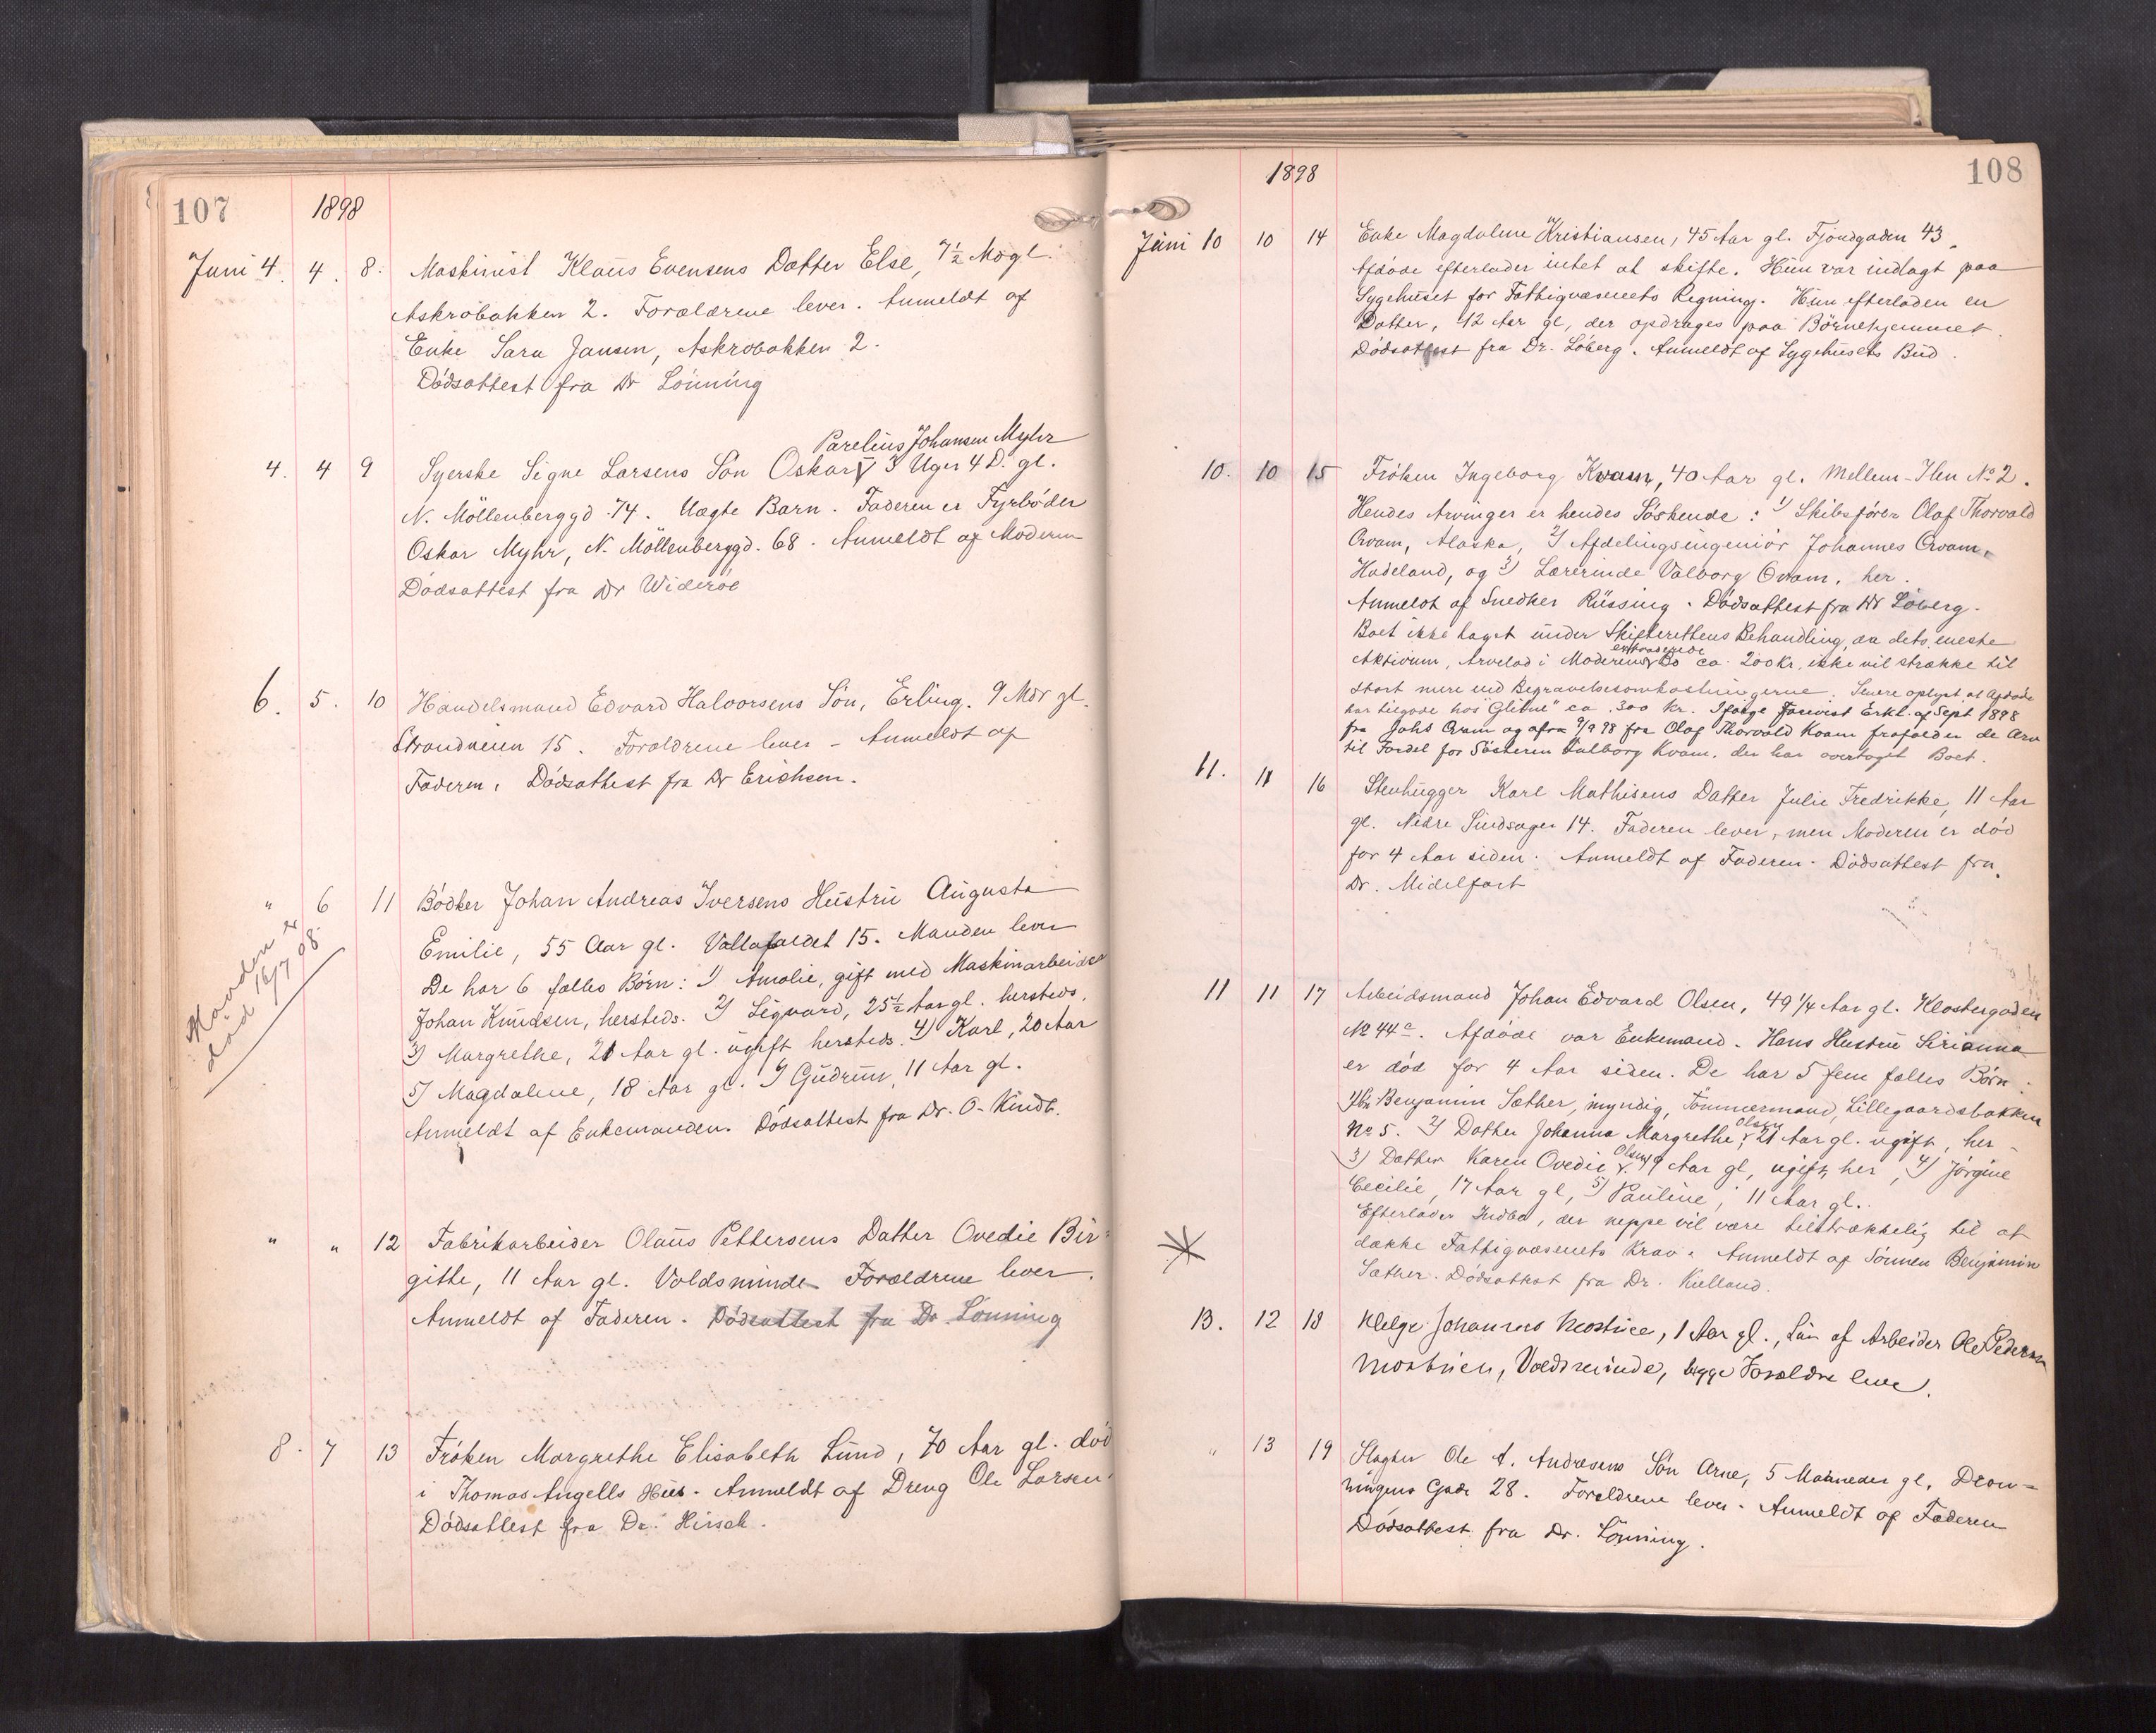 107
1898
Juni 4. 4. 8. Maskinist Klaus Evensens Datter Else, 7½ Mdgl.
Askrobakken 2. Forældrene lever. Anmeldt af
Enke Sara Jansen, Askrobakken 2.
Dödsattest fra Dr Lönning
Parelius Johansen Myhr
4. 4 9 Syerske Signe Larsens Sön Oskar V 3 Uger 4 D. gl.
N. Möllenberggd. 74. Uægte Barn. Faderen er Fyrböder
Oskar Myhr, N. Möllenberggd. 68. Anmeldt af Moderen
Dödsattest fra Dr Wideröe
6. 5. 10 Handelsmand Edvard Halvorsens Sön, Erling. 9 Mdr gl.
Strandveien 15. Forældrene lever - Anmeldt af
Faderen. Dödsattest fra Dr Erichsen.
" 6 11 Bödker Johan Andreas Iversens Hustru Augusta
Manden er
död 16/7 08.
Emilie, 55 Aar gl. Vollafaldet 15. Manden lever
De har 6 fælles Börn: 1) Amalie, gift med Maskinarbeider
Johan Knudsen, hersteds. 2) Sigvard, 25½ Aar gl. hersteds.
3) Margrethe, 21 Aar gl. ugift hersteds. 4) Karl, 20 Aar
5) Magdalene, 18 Aar gl. 6) Gudrun, 11 Aar gl.
Anmeldt af Enkemanden. Dödsattest fra Dr. O.
" " 12 Fabrikarbeider Olaus Pettersens Datter Ovedie Bir=
gitte, 11 Aar gl. Voldsminde Forældrene lever.
Anmeldt af Faderen. Dödsattest fra Dr Lönning
8. 7 13 Fröken Margrethe Elisabeth Lund, 70 Aar gl. död
i Thomas Angells Hus. Anmeldt af Dreng Ole Larsen.
Dödsattest fra Dr. Hirsch.
1898
108
Juni 10 10 14 Enke Magdalene Kristiansen, 45 Aar gl. Fjordgaden 43.
Afdöde efterlader intet at skifte. Hun var indlagt paa
Sygehuset for Fattigvæsenets Regning. Hun efterladen en
Datter, 12 Aar gl, der opdrages paa Börnehjemmet.
Dödsattest fra Dr. Löberg. Anmeldt af Sygehusets Bud.
10. 10 15 Fröken Ingeborg Kvam, 40 Aar gl. Mellem-Ilen No 2.
Hendes Arvinger er hendes Söskende: 1) Skibsförer Olaf Thorvald
Qvam, Alaska, 2) Afdelingsingeniör Johannes Qvam,
Hadeland, og 3) Lærerinde Valborg Qvam, her.
Anmeldt af Snedker Rüssing. Dödsattest fra Dr Löberg.
Boet ikke taget under Skifterettens Behandling, da dets eneste
Aktivum, Arvelod i Moderens Bo ca. 200 Kr. ikke vil strække til
stort mere end Begravelsesomkostningerne. Senere oplyst at Afdöde
har tilgode hos "Glitne" ca. 300 Kr. Ifölge Erkl. af Sept 1898
fra Johs Qvam og af 9/9 98 fra Olaf Thorvald Kvam frafalder de Arv
til Fordel for Sösteren Valborg Kvam, der har overtaget Boet.
11. 11 16 Stenhugger Karl Mathisens Datter Julie Fredrikke, 11 Aar
gl. Nedre Singsager 14. Faderen lever, men Moderen er död
for 4 Aar siden. Anmeldt af Faderen. Dödsattest fra
Dr. Midelfart
11 11 17 Arbeidsmand Johan Edvard Olsen, 49 1/4 Aar gl. Klostergaden
No 44c. Afdöde var Enkemand. Hans Hustru Sirianna
er död for 4 Aar siden. De har 5 fem fælles Börn:
1) Sön Benjamin Sæther, myndig, Tömmermand, Lillegaardsbakken
No 5. 2) Datter Johanna Margrethe Olsen, 21 Aar gl. ugift, her -
3) Datter Karen Ovedie Olsen 19 Aar gl, ugift, her, 4) Jörgine
Cecilie, 17 Aar gl, 5) Pauline, 11 Aar gl.
Efterlader Indbo, der neppe vil være tilstrækkelig til at
dække Fattigvæsenets Krav. Anmeldt af Sönnen Benjamin
Sæther. Dödsattest fra Dr. Kielland.
13. 12 18 Helge Johannes 1 Aar gl., Sön af Arbeider Ole Pedersen
Voldsminde, begge Forældre lever.
" 13 19 Slagter Ole A. Andresens Sön Arne, 5 Maaneder gl, Dron=
ningens Gade 28. Forældrene lever. Anmeldt af Faderen
Dödsattest fra Dr. Lönning.